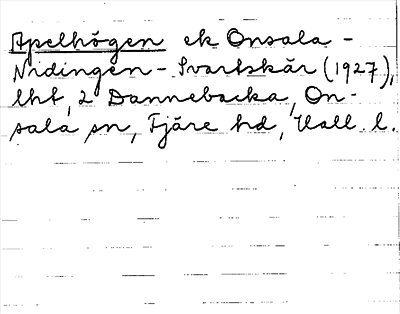 Apelhögen ek Onsala -
Nidingen - Svartskär (1927),
lht, 2 Dannebacka, On-
sala sn, Fjäre hd, Hall. l.